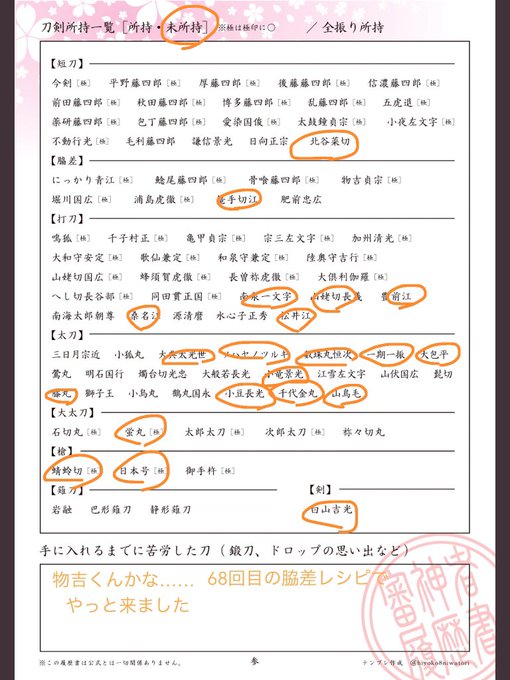 刀剣所持一覧［所持・未所持］ ※極は極印に〇 ／全振り所持
【短刀】
今剣［極］ 平野藤四郎［極］ 厚藤四郎［極］ 後藤藤四郎［極］ 信濃藤四郎［極］
前田藤四郎［極］ 秋田藤四郎［極］ 博多藤四郎［極］ 乱藤四郎［極］ 五虎退［極］
薬研藤四郎［極］ 包丁藤四郎［極］ 愛染国俊［極］ 太鼓鐘貞宗［極］ 小夜左文字［極］
不動行光［極］ 毛利藤四郎 謙信景光 日向正宗 北谷菜切
【脇差】
にっかり青江［極］ 鯰尾藤四郎［極］ 骨喰藤四郎［極］ 物吉貞宗［極］
堀川国広［極］ 浦島虎徹［極］ 篭手切江 肥前忠広
【打刀】
鳴狐［極］ 千子村正［極］ 亀甲貞宗［極］ 宗三左文字［極］ 加州清光［極］
大和守安定［極］ 歌仙兼定［極］ 和泉守兼定［極］ 陸奥守吉行［極］
山姥切国広［極］ 蜂須賀虎徹［極］ 長曽祢虎徹［極］ 大倶利伽羅［極］
へし切長谷部［極］ 同田貫正国［極］ 南泉一文字 山姥切長義 豊前江
南海太郎朝尊 桑名江 源清麿 水心子正秀 松井江
【太刀】
三日月宗近 小狐丸 大典太光世 ソハヤノツルキ 数珠丸恒次 一期一振 大包平
鶯丸 明石国行 燭台切光忠 大般若長光 小竜景光 江雪左文字 山伏国広 髭切
膝丸 獅子王 小烏丸 鶴丸国永 小豆長光 千代金丸 山鳥毛
【大太刀】
石切丸［極］ 蛍丸［極］ 太郎太刀［極］ 次郎太刀［極］ 祢々切丸
【槍】
蜻蛉切［極］ 日本号［極］ 御手杵［極］
【薙刀】 【剣】
岩融 巴形薙刀 静形薙刀 白山吉光
手に入れるまでに苦労した刀（鍛刀、ドロップの思い出など）
物吉くんかな…… 68回目の脇差レシピで
やっと来ました
審神者履歴書
※この履歴書は公式とは一切関係ありません。 参 テンプレ作成 @hiyoko8niwatori